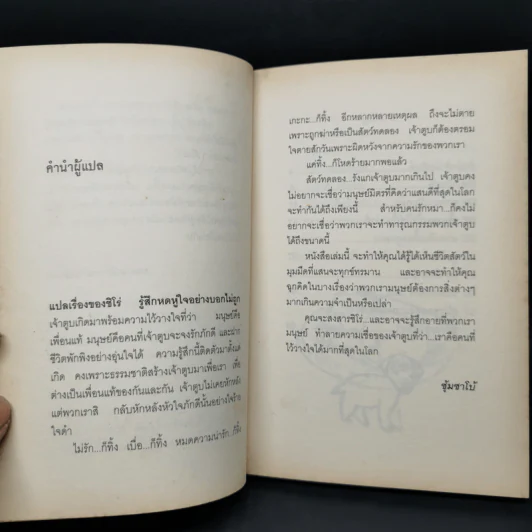 คำนำผู้แปล
แปลเรื่องของชิโร่ รู้สึกหดหู่ใจอย่างบอกไม่ถูก
เจ้าตูบเกิดมาพร้อมความไว้วางใจที่ว่า มนุษย์คือ
เพื่อนแท้ มนุษย์คือคนที่เจ้าตูบจะจงรักภักดี และฝาก
ชีวิตพักพิงอย่างอุ่นใจได้ ความรู้สึกนี้ติดตัวมาตั้งแต่
เกิด คงเพราะธรรมชาติสร้างเจ้าตูบมาเพื่อเรา เพื่อ
ต่างเป็นเพื่อนแท้ของกันและกัน เจ้าตูบไม่เคยหักหลัง
แต่พวกเราสิ กลับหักหลังหัวใจภักดีนั้นอย่างใจร้าย
ใจดำ
ไม่รัก...ก็ทิ้ง เบื่อ...ก็ทิ้ง หมดความน่ารัก...ก็ทิ้ง
เกะกะ...ก็ทิ้ง อีกหลากหลายเหตุผล ถึงจะไม่ตาย
เพราะถูกฆ่าหรือเป็นสัตว์ทดลอง เจ้าตูบก็ต้องตรอม
ใจตายสักวันเพราะผิดหวังจากความรักของพวกเรา
แค่ทิ้ง...ก็โหดร้ายมากพอแล้ว
สัตว์ทดลอง...รังแกเจ้าตูบมากเกินไป เจ้าตูบคง
ไม่อยากจะเชื่อว่ามนุษย์มิตรที่คิดว่าแสนดีที่สุดในโลก
จะทำกันได้ถึงเพียงนี้ สำหรับคนรักหมา...ก็คงไม่
อยากจะเชื่อว่าพวกเราจะทำทารุณกรรมพวกเจ้าตูบ
ได้ถึงขนาดนี้
หนังสือเล่มนี้ จะทำให้คุณได้รู้ได้เห็นชีวิตสัตว์ใน
มุมมืดที่แสนจะทุกข์ทรมาน และอาจจะทำให้คุณ
ฉุกคิดในบางเรื่องว่าพวกเรามนุษย์ต้องการสิ่งต่างๆ
มากเกินความจำเป็นหรือเปล่า
คุณจะสงสารชิโร่...และอาจจะรู้สึกอายที่พวกเรา
มนุษย์ ทำลายความเชื่อของเจ้าตูบที่ว่า...เราคือคนที่
ไว้วางใจได้มากที่สุดในโลก
ซุ้มซาโบ้